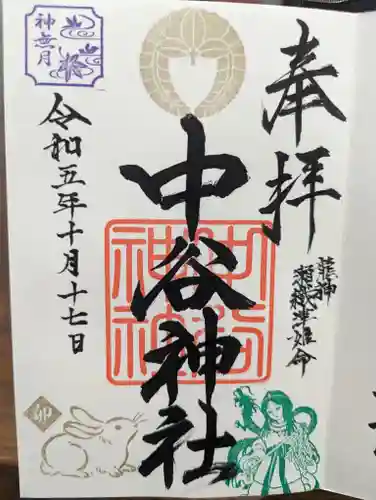 奉拝
龍神
瀬織津姫命
中谷神社
中谷神社
令和五年十月十七日
神無月
卯